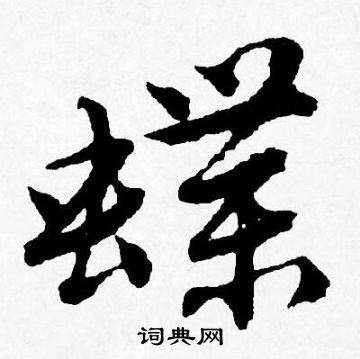 蝶
词典网